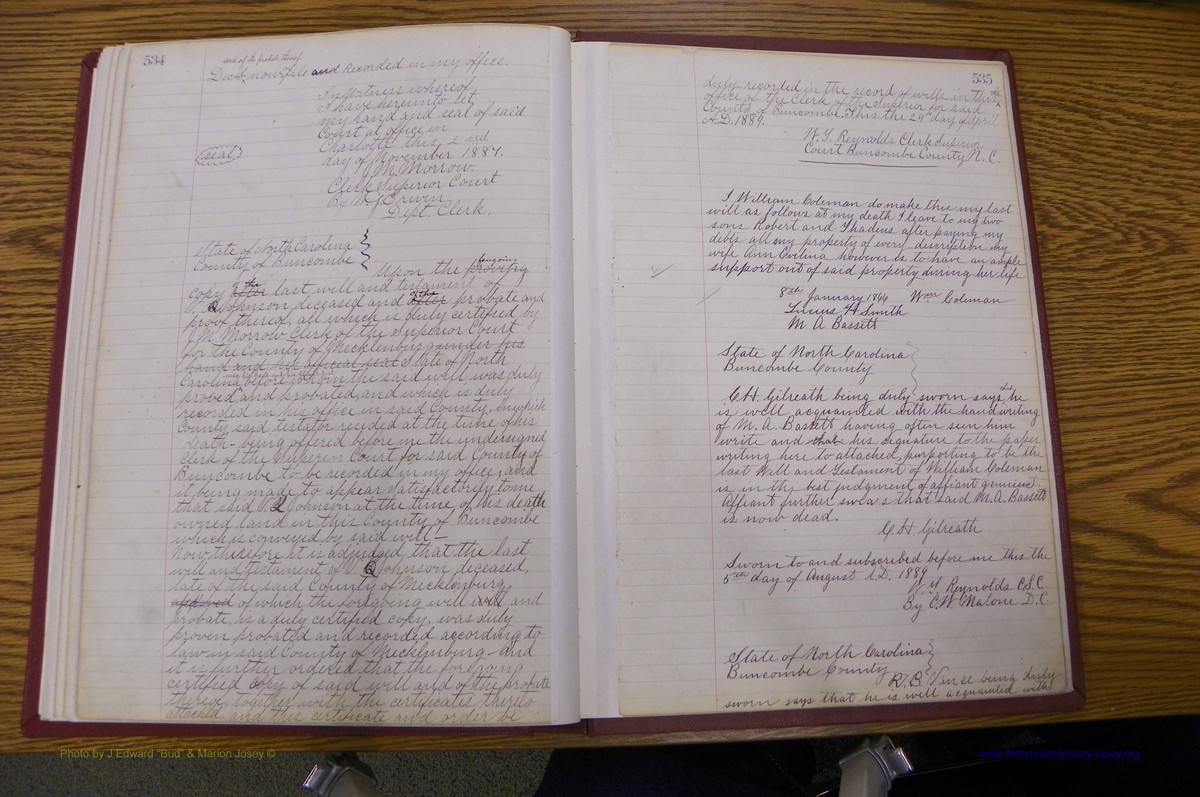 534
and of the probate thereof
Deed, now file and Recorded in my office.
In Witness whereof
I have hereunto set
my hand and seal of said
Court at office in
Charlotte this 2nd
day of November 1887.
J. M. Morrow.
Clerk Superior Court
By W. J. Erwin
Dept. Clerk.
(seal)
State of North Carolina
County of Buncombe
Upon the foregoing
copy of the last will and testament of
Q Johnson deceased and of the probate and
proof thereof, all which is duly certified by
J. M. Morrow Clerk of the Superior Court
for the County of Mecklenburg under his
hand and his official seal State of North
Carolina before whom the said will was duly
probed and probated, and which is duly
recorded in his office in said County, in which
County said testator resided at the time of his
death - being offered before me the undersigned
Clerk of the Superior Court for said County of
Buncombe to be recorded in my office, and
it being made to appear satisfactorily to me
that said Q Johnson at the time of his death
owned land in this County of Buncombe
which is conveyed by said will -
Now therefore it is adjudged that the last
will and testament of Q Johnson deceased,
late of the said County of Mecklenburg,
of which the forgoing will and
probate, is a duly certified copy, was duly
proven probated and recorded according to
law in said County of Mecklenburg - and
it is further ordered that the forgoing
certified copy of said will and of the probate
thereof, together with the certificates thereto
attached and this certificate and order be
535
duly recorded in the record of wills in the
office of the Clerk of the Superior for said
County of Buncombe. This the 29th day of April
A.D. 1889.
W. Y. Reynolds Clerk Superior
Court Buncombe County N. C.
I William Coleman do make this my last
will as follows at my death I leave to my two
sons Robert and Thadeus after paying my
debts all my property of every discription my
wife Ann Evelina however is to have an ample
support out of said property during her life
8th January 1866 Wm Coleman
Lucius H Smith
M. A Bassett
State of North Carolina
Buncombe County
C. H. Gilreath being duly sworn says that he
is well acquainted with the hand writing
of M. A. Bassett having often seen him
write and that his signature to the paper
writing here to attached, purporting to be the
last Will and Testament of William Coleman
is in the best judgment of affiant genuine.
Affiant further swears that said M. A. Bassett
is now dead.
C. H. Gilreath
Sworn to and subscribed before me this the
5th day of August A.D. 1889
W. Y. Reynolds C.S.C.
By C. W. Malone D.C.
State of North Carolina
Buncombe County
R. B. Vance being duly
sworn says that he is well acquainted with
Photo by J Edward "Bud" & Marion Josey ©
www.thehouseofjossey-josey.org